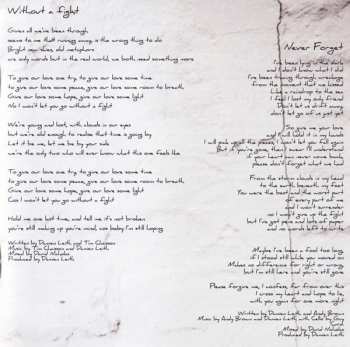 Without a fight
Given all we've been through,
seems to me that running away, is the wrong thing to do
Bright new lines, old metaphors
are only words but in the real world, we both need something more
To give our love one try, to give our love some time
to give our love some peace, give our love some room to breath,
Give our love some hope, give our love some light
No I won't let you go without a fight
We're young and lost, with clouds in our eyes
but we're old enough to realise that time is going by
Let it be me, let me be by your side
we're the only two who will ever know what this one feels like
To give our love one try, to give our love some time
to give our love some peace, give our love some room to breath,
Give our love some hope, give our love some light
Cos I won't let you go without a fight
Hold me one last time, and tell me it's not broken
you're still making up you're mind, cos baby I'm still hoping
Written by Damien Leith and Tim
Music by Tim and Damien Leith
Mixed by David Nicholas
Produced by Damien Leith
Never Forget
I've been lying in the dark
and I don't know what I did
I've been tracing through wreckage
from the moment that we kissed
Like a raindrop to the sea
I feel I lost my only friend
Don't let us drift away
don't let go of us just yet
So give me your love
and I will hold it in my hands
I will pick up all the pieces, I won't let you fall again
But if you're gone, then I swear I'll understand
if your heart can never come back,
please don't forget what we had
From the storm clouds in my head
to the earth beneath my feet
You were the best and the worst part
of every part of me
and I won't surrender
no I won't give up the fight
but I've got pens and lots of paper
and no words left to write
Maybe I've been a fool too long,
if I stood still while you moved on
Makes no difference for right or wrong
but I'm still here and you're still gone
Please forgive me, I confess, far from over this
I cross my heart and hope to lie,
with you again for one more night
Written by Damien Leith and Andy Brown
Music by Andy Brown and Damien Leith, with Cello by
Mixed by David Nicholas
Produced by Damien Leith